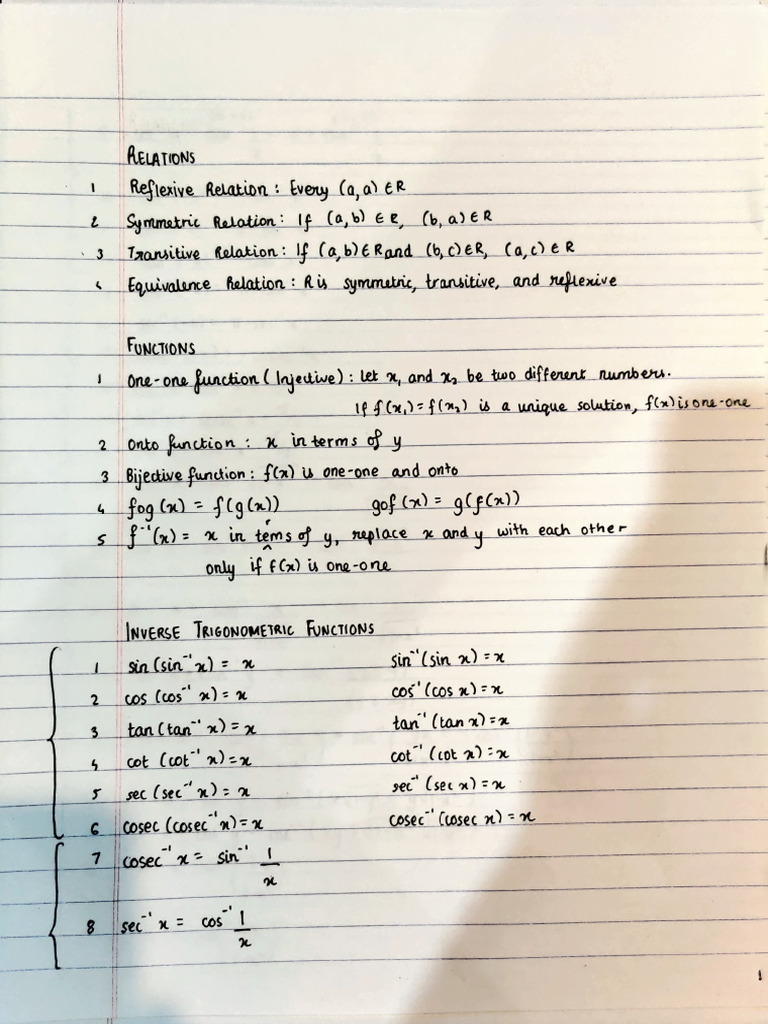 RELATIONS
1 Reflexive Relation : Every (a,a) ∈ R
2 Symmetric Relation : If (a,b) ∈ R, (b,a) ∈ R
3 Transitive Relation : If (a,b) ∈ R and (b,c) ∈ R, (a,c) ∈ R
4 Equivalence Relation : R is symmetric, transitive, and reflexive
FUNCTIONS
1 One-one function (Injective) : Let x₁ and x₂ be two different numbers.
If f(x₁) = f(x₂) is a unique solution, f(x) is one-one
2 Onto function : x in terms of y
3 Bijective function : f(x) is one-one and onto
4 fog (x) = f(g(x)) gof (x) = g(f(x))
5 f⁻¹(x) = x in terms of y, replace x and y with each other
only if f(x) is one-one
INVERSE TRIGONOMETRIC FUNCTIONS
1 sin (sin⁻¹ x) = x sin⁻¹ (sin x) = x
2 cos (cos⁻¹ x) = x cos⁻¹ (cos x) = x
3 tan (tan⁻¹ x) = x tan⁻¹ (tan x) = x
4 cot (cot⁻¹ x) = x cot⁻¹ (cot x) = x
5 sec (sec⁻¹ x) = x sec⁻¹ (sec x) = x
6 cosec (cosec⁻¹ x) = x cosec⁻¹ (cosec x) = x
7 cosec⁻¹ x = sin⁻¹ 1/x
8 sec⁻¹ x = cos⁻¹ 1/x
1